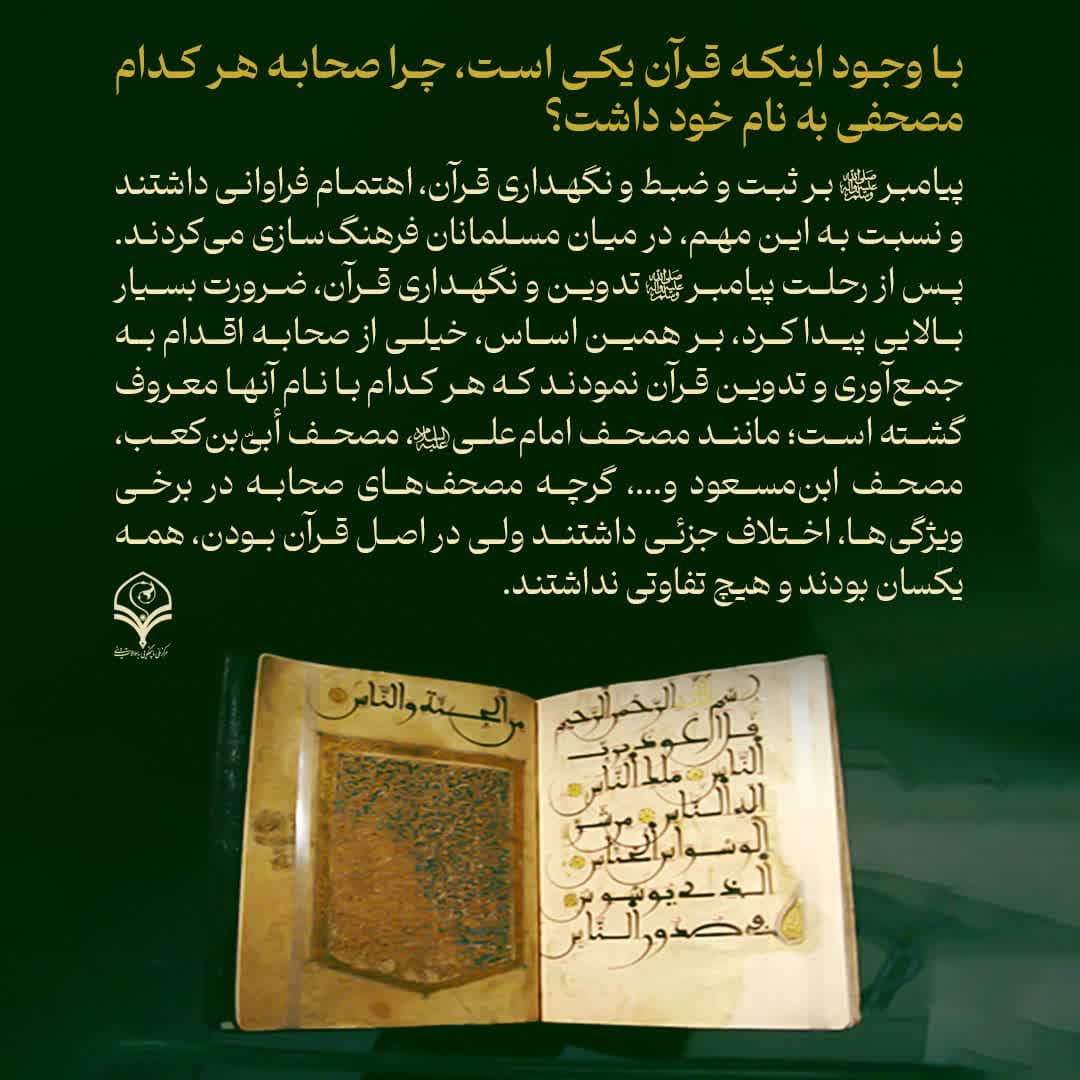 با وجود اینکه قرآن یکی است، چرا صحابه هر کدام
مصحفی به نام خود داشت؟
پیامبرﷺ بر ثبت و ضبط و نگهداری قرآن، اهتمام فراوانی داشتند
و نسبت به این مهم، در میان مسلمانان فرهنگ‌سازی می‌کردند.
پس از رحلت پیامبرﷺ تدوین و نگهداری قرآن، ضرورت بسیار
بالایی پیدا کرد، بر همین اساس، خیلی از صحابه اقدام به
جمع‌آوری و تدوین قرآن نمودند که هر کدام با نام آنها معروف
گشته است؛ مانند مصحف امام‌علی علیه‌السلام، مصحف أبیّ‌بن‌کعب،
مصحف ابن‌مسعود و...، گرچه مصحف‌های صحابه در برخی
ویژگی‌ها، اختلاف جزئی داشتند ولی در اصل قرآن بودن، همه
یکسان بودند و هیچ تفاوتی نداشتند.
مرکز ملی پاسخگویی به سوالات دینی
بسم الله الرحمن الرحيم
قل اعوذ برب
الناس ملك الناس
اله الناس من شر
الوسواس الخناس
الذي يوسوس
في صدور الناس
من الجنة والناس